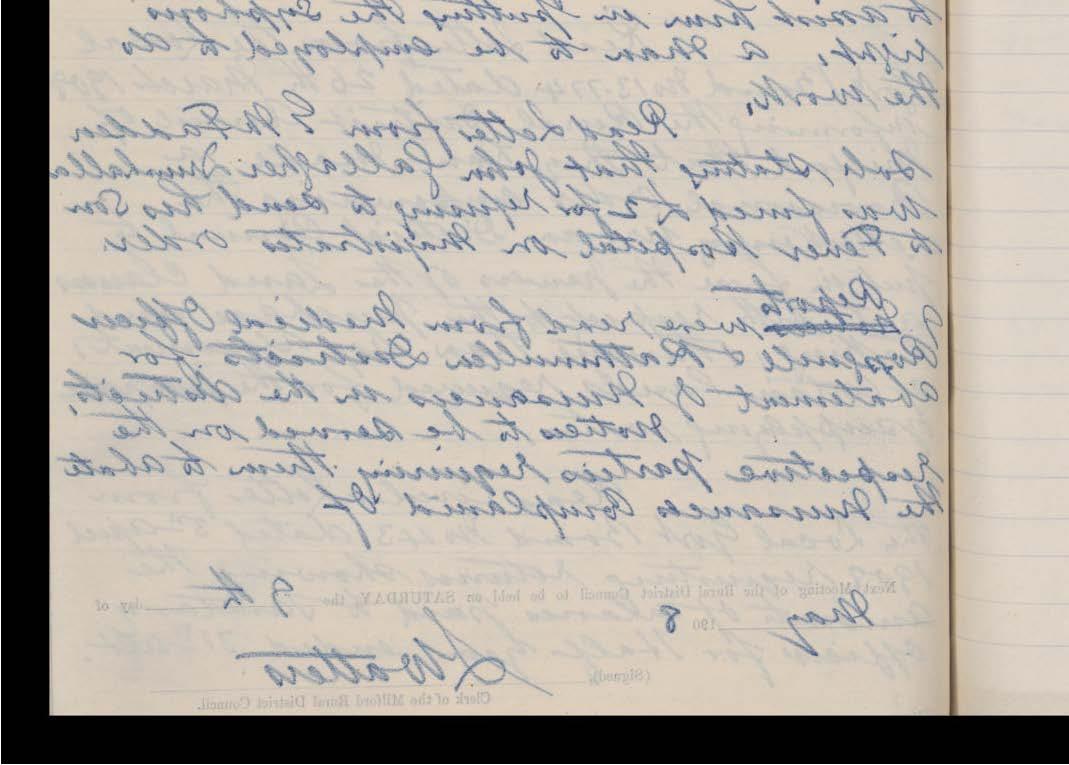 to assist him in putting the Syphons
right, a man to be employed to do
the work.
Read letter from E McFadden
Sols stating that John Gallagher
was fined £2 for refusing to send his Son
to Fever Hospital on Magistrates order
Reports
were read from Medical Officer
Rosguill & Rathmullen Districts for
abatement of Nuisances in the districts.
Notices to be served on the
respective parties requiring them to abate
the Nuisances Complained of
Next Meeting of the Rural District Council to be held on SATURDAY, the 9th day of
May 190 8
(Signed), J Watters
Clerk of the Milford Rural District Council.